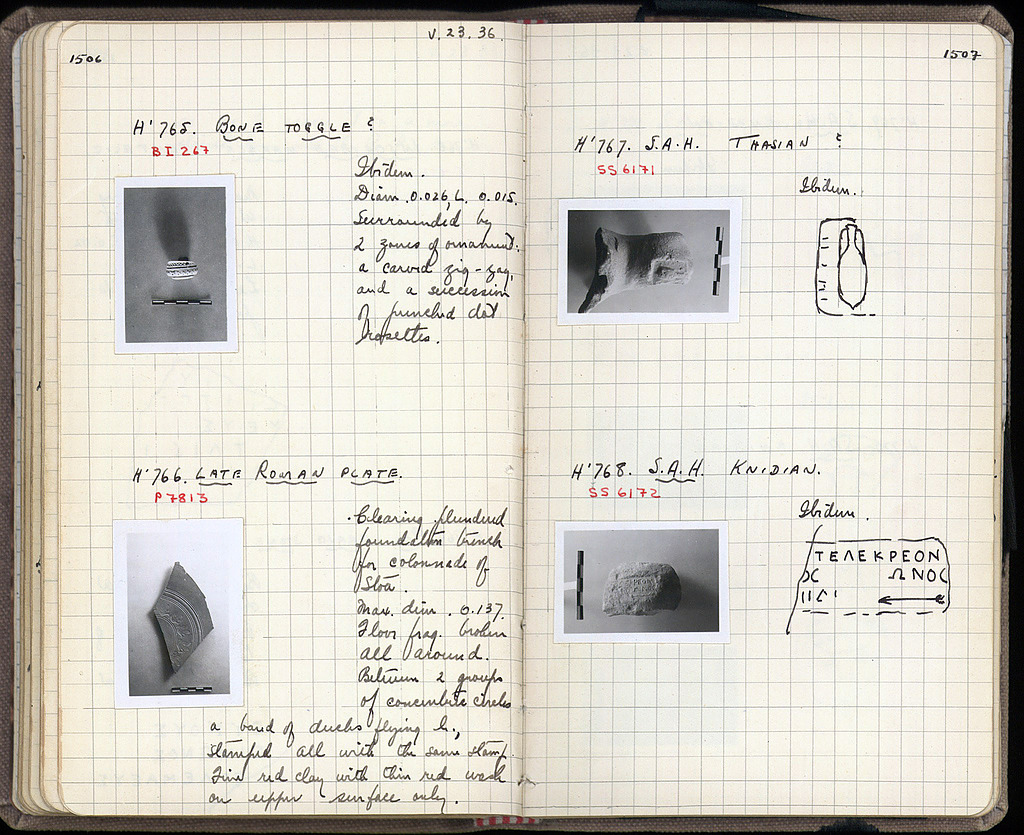 V. 23. 36.
1506
H'765. BONE TOGGLE ?
BI 267
Ibidem.
Diam. 0.026, L. 0.015.
Surrounded by
2 zones of ornament:
a carved zig-zag,
and a succession
of punched dot
rosettes.
H'766. LATE ROMAN PLATE.
P 7813
Clearing plundered
foundation trench
for colonnade of
Stoa.
Max. dim. 0.137.
Floor frag. broken
all around.
Between 2 groups
of concentric circles
a band of ducks flying l.,
stamped all with the same stamp.
Fine red clay with thin red wash
on upper surface only.
1507
H'767. S.A.H. THASIAN ?
SS 6171
Ibidem.
H'768. S.A.H. KNIDIAN.
SS 6172
Ibidem.
ΤΕΛΕΚΡΕΟΝ
ΩΝΟC